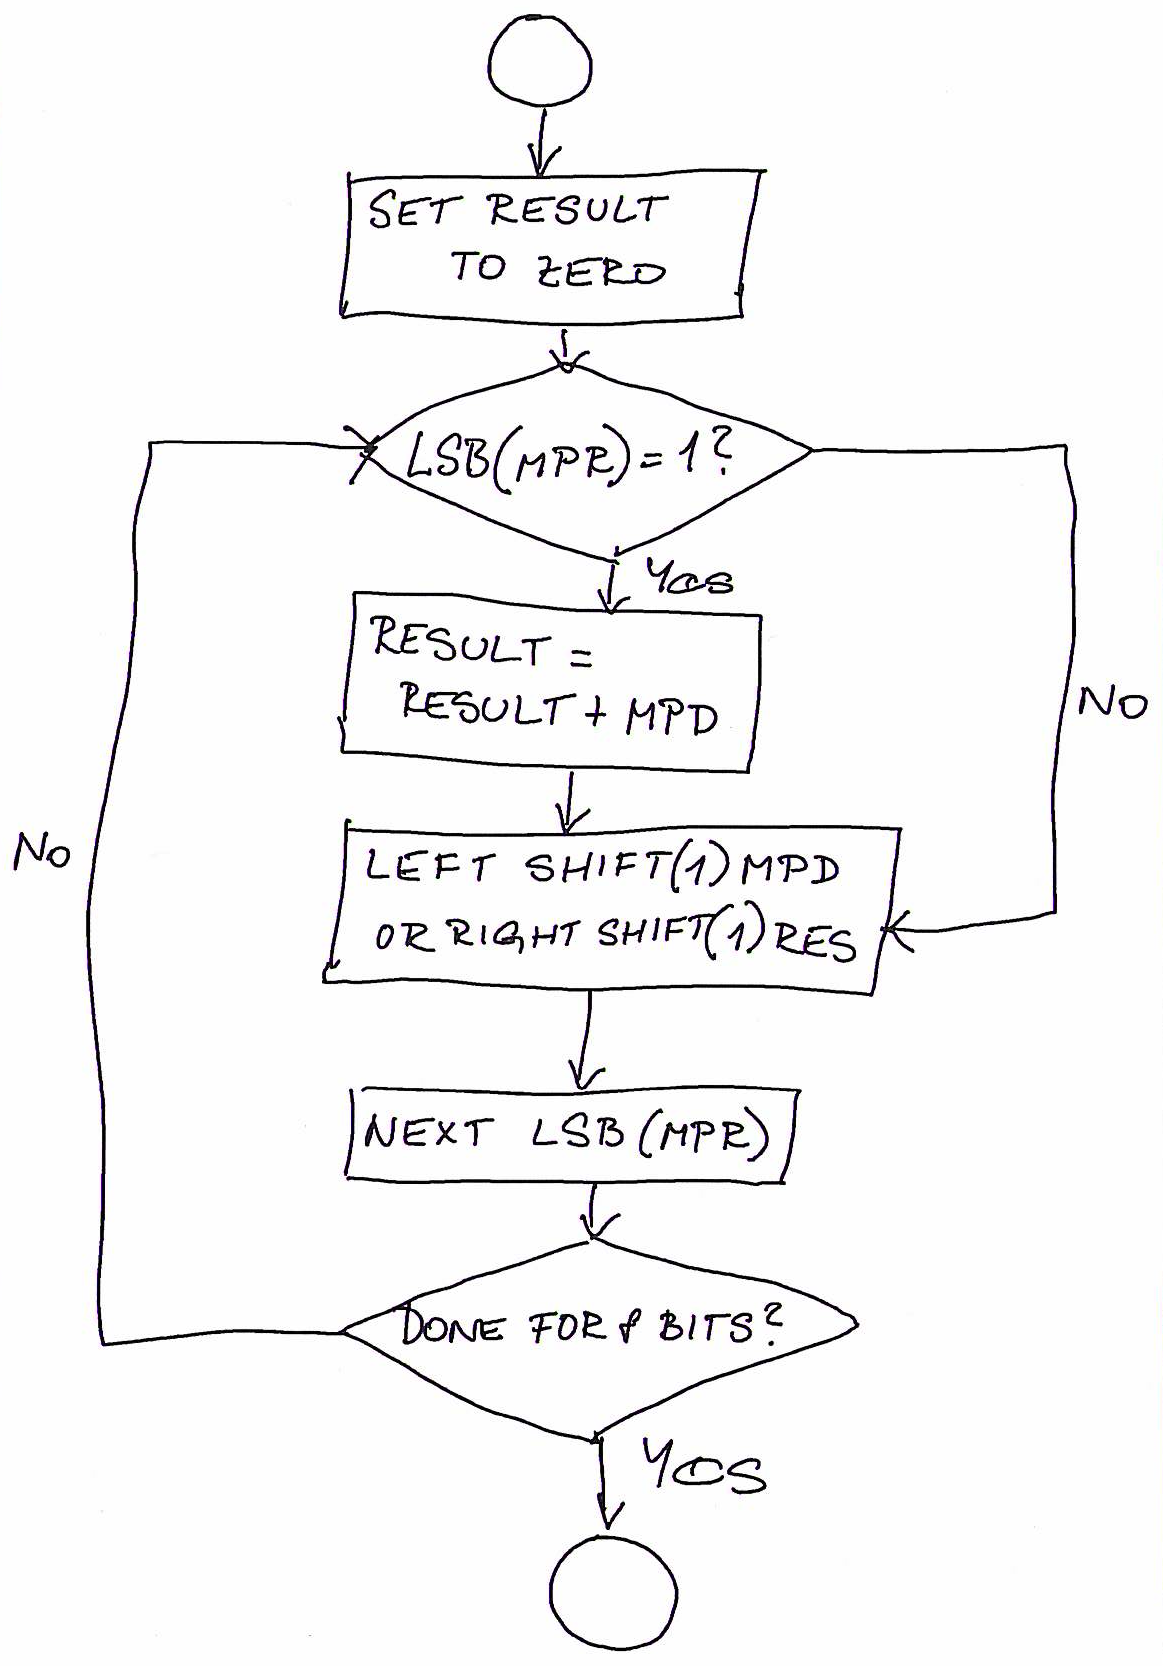 SET RESULT
TO ZERO
LSB(MPR)=1?
YES
RESULT =
RESULT + MPD
NO
NO
LEFT SHIFT(1) MPD
OR RIGHT SHIFT(1) RES
NEXT LSB (MPR)
DONE FOR 8 BITS?
YES